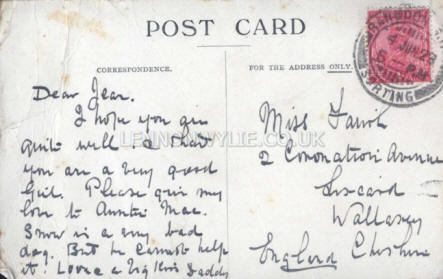 POST CARD
CORRESPONDENCE.
FOR THE ADDRESS ONLY.
Dear Jean.
I hope you are
quite well, & that
you are a very good
Girl. Please give my
love to Auntie Mac.
is a very bad
dog. But he cannot help
it. Love & big kiss Daddy
Miss
2 Coronation Avenue
Liscard
Wallasey
Cheshire
England
LENNONWYLIE.CO.UK
SORTING